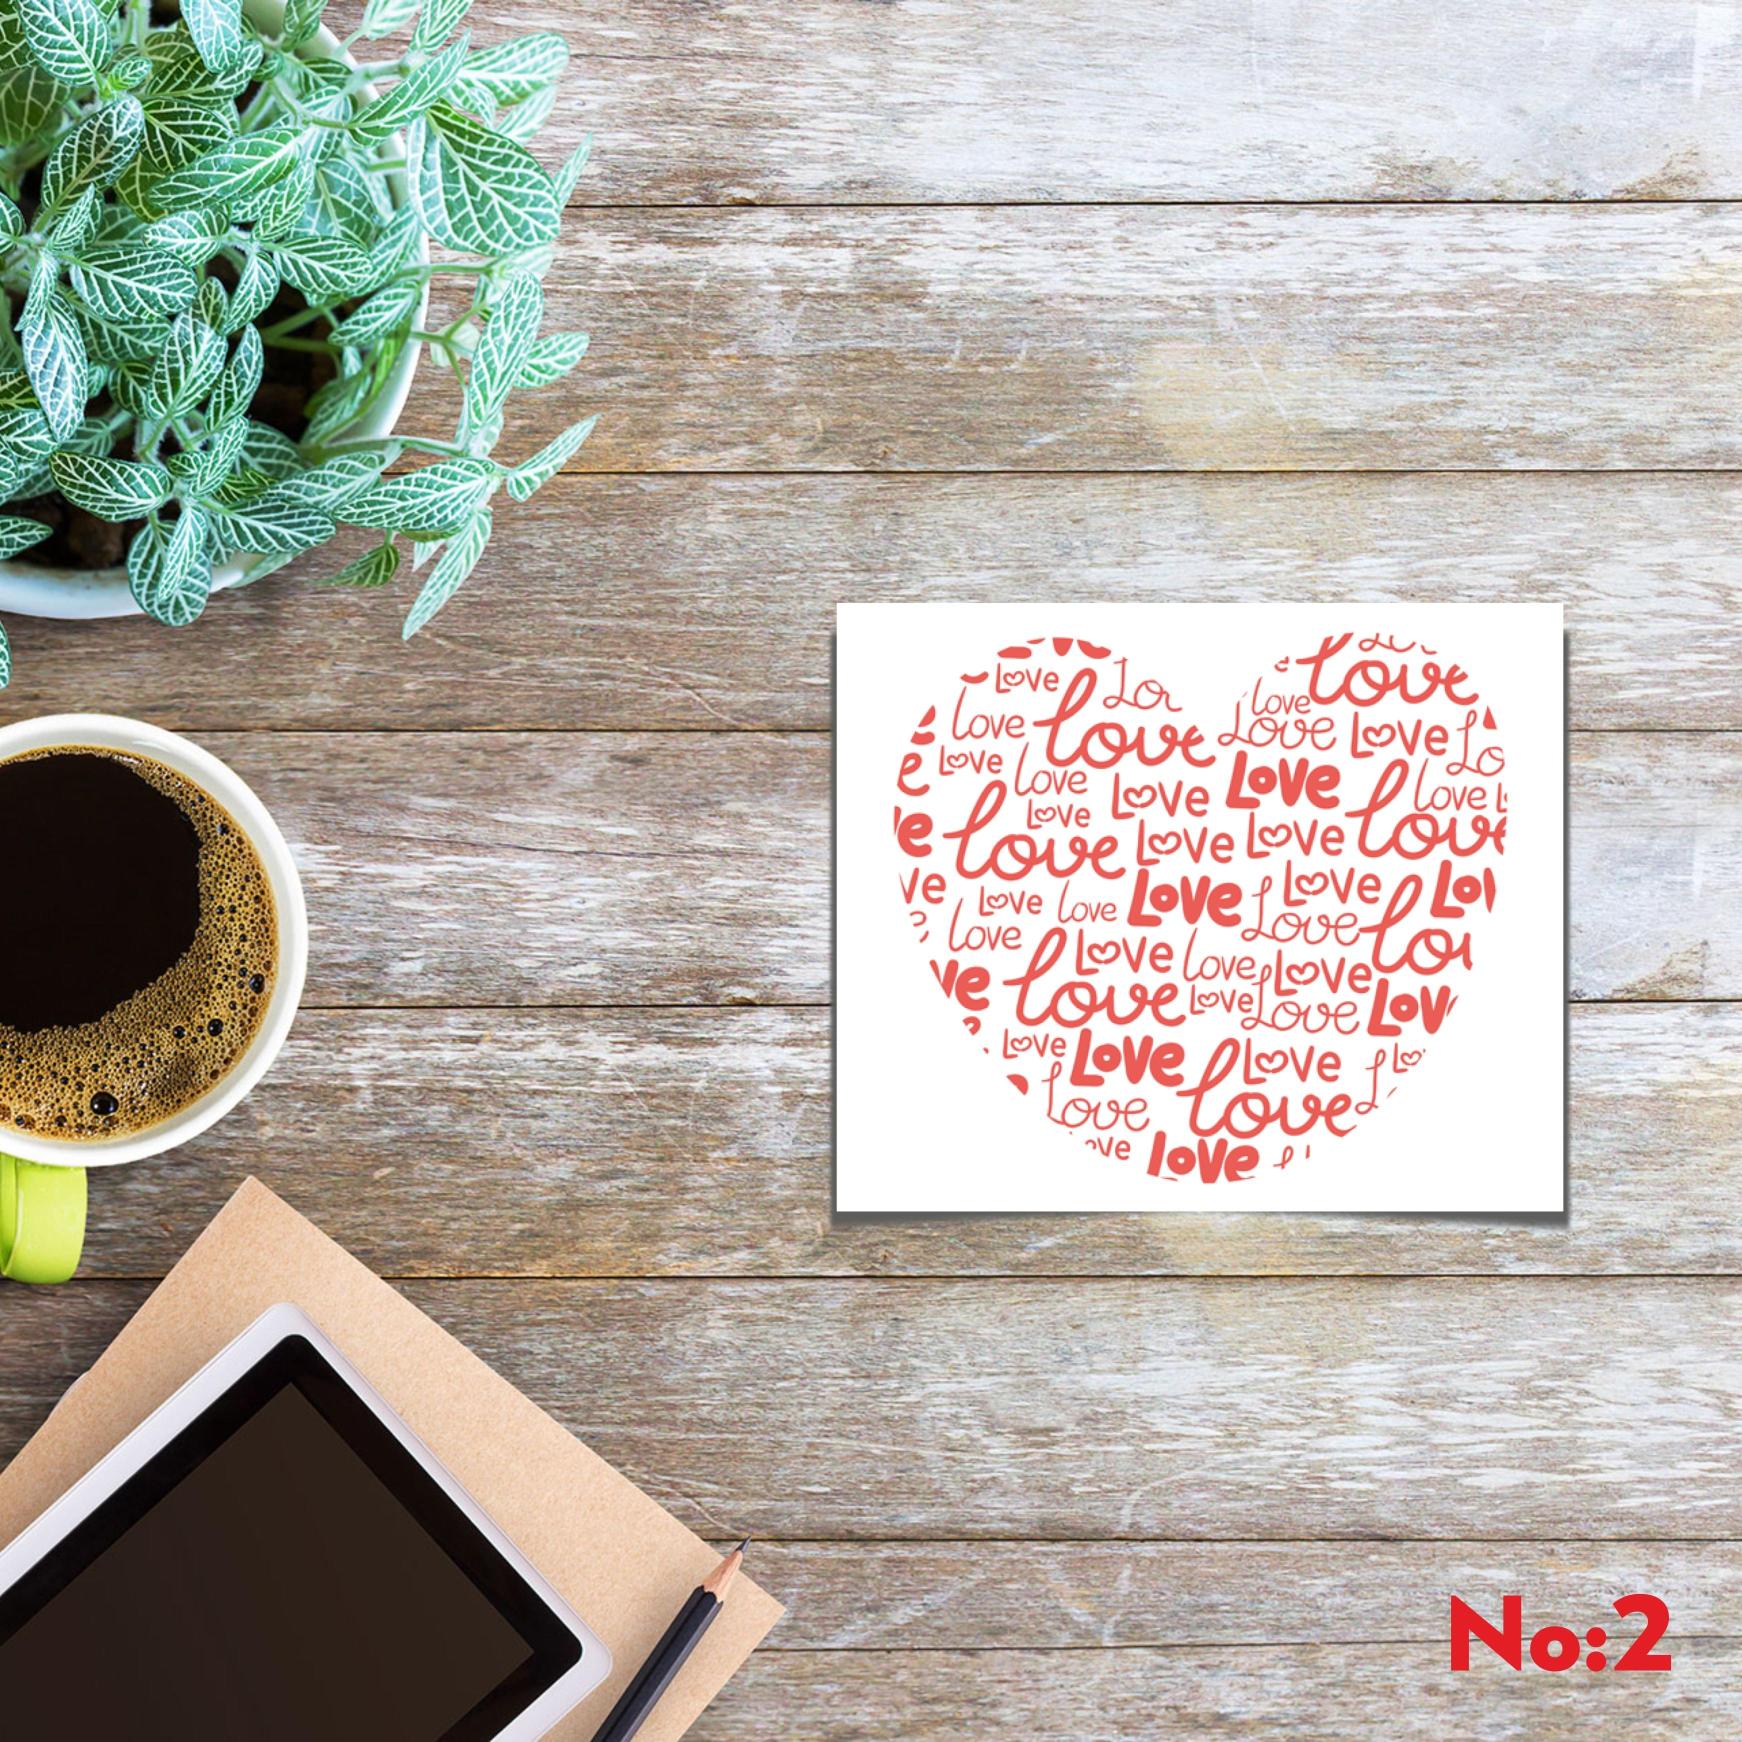 Love Lov love love
Love love Love Love Lo
Love Love Love Love Love
Love Love love
love Love Love love
ve Love love Love Love Lov
Love Love lov
Love Love Love
ve love Love Love Lov
Love Love Love Lo
Love love
ove love
No:2